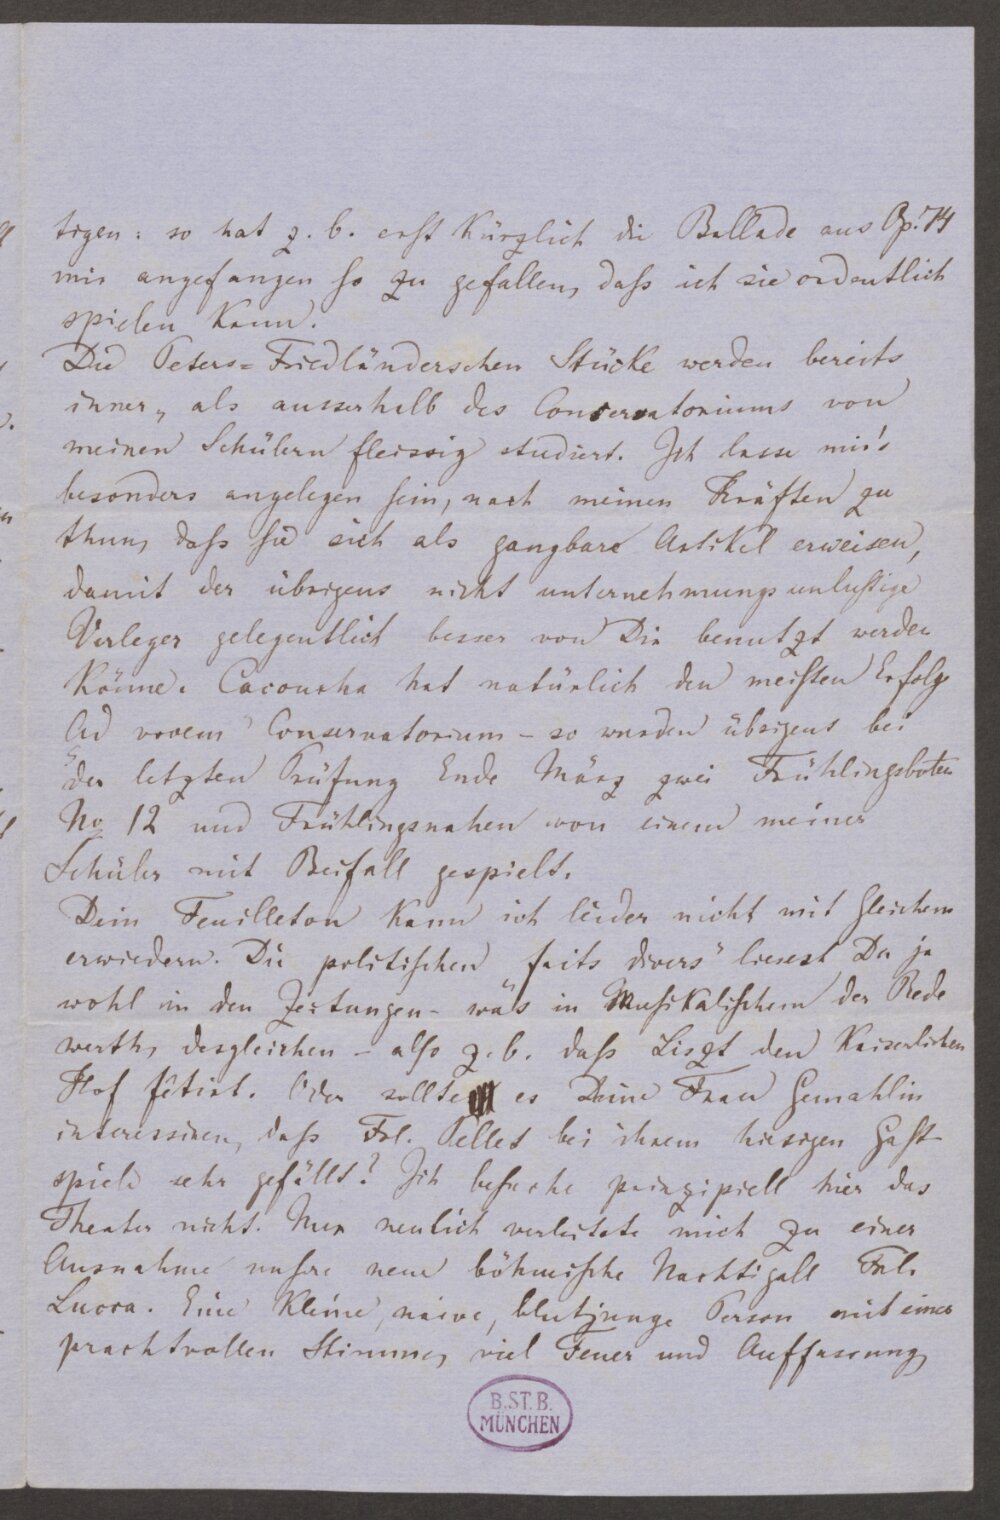 tigen: so hat z. b. erst kürzlich die Ballade aus Op. 74
mir angefangen so zu gefallen, daß ich sie ordentlich
spielen kann.
Die Peters=Friedländerschen Stücke werden bereits
inner„ als ausserhalb des Conservatoriums von
meinen Schülern fleissig studiert. Ich lasse mir's
besonders angelegen sein, nach meinen Kräften zu
thun, daß sie sich als gangbare Artikel erweisen,
damit der übrigens nicht unternehmungsunlustige
Verleger gelegentlich besser von Dir benutzt werden
könne. Cacoucha hat natürlich den meisten Erfolg
Ad vocem Conservatorium – so wurden übrigens bei
der letzten Prüfung Ende März zwei Frühlingsboten
No 12 und Frühlingsnahen von einem meiner
Schüler mit Beifall gespielt.
Dein Feuilleton kann ich leider nicht mit Gleichem
erwiedern. Die politischen „faits divers" liesest Du ja
wohl in den Zeitungen – was in Musikalischem der Rede
werth, desgleichen – also z. b. daß Liszt den Kaiserlichen
Hof fêtirt. Oder sollte es Deine Frau Gemahlin
interessiren, daß Frl. Pellet bei ihrem hiesigen Gast-
spiele sehr gefällt? Ich besuche prinzipiell hier das
Theater nicht. Nur neulich verleitete mich zu einer
Ausnahme unsere neue böhmische Nachtigall Frl.
Lucca. Eine kleine, naive, blutjunge Person mit einer
prachtvollen Stimme, viel Feuer und Auffassung,
B.ST.B.
MÜNCHEN